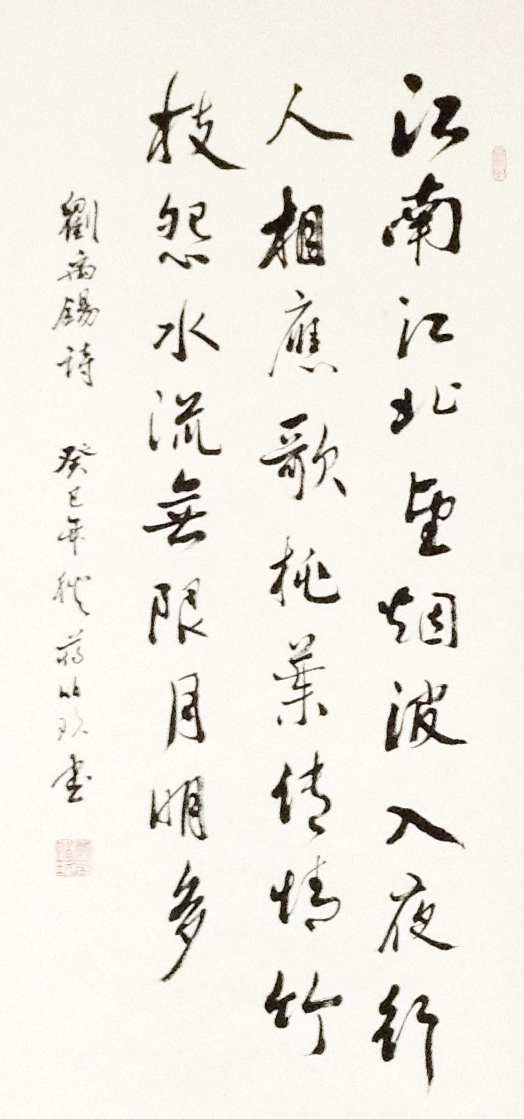 江南江北望烟波入夜行
人相應歌桃葉倩情竹
枝怨水流無限月明多
劉禹錫詩 癸巳年秋 蔣 書